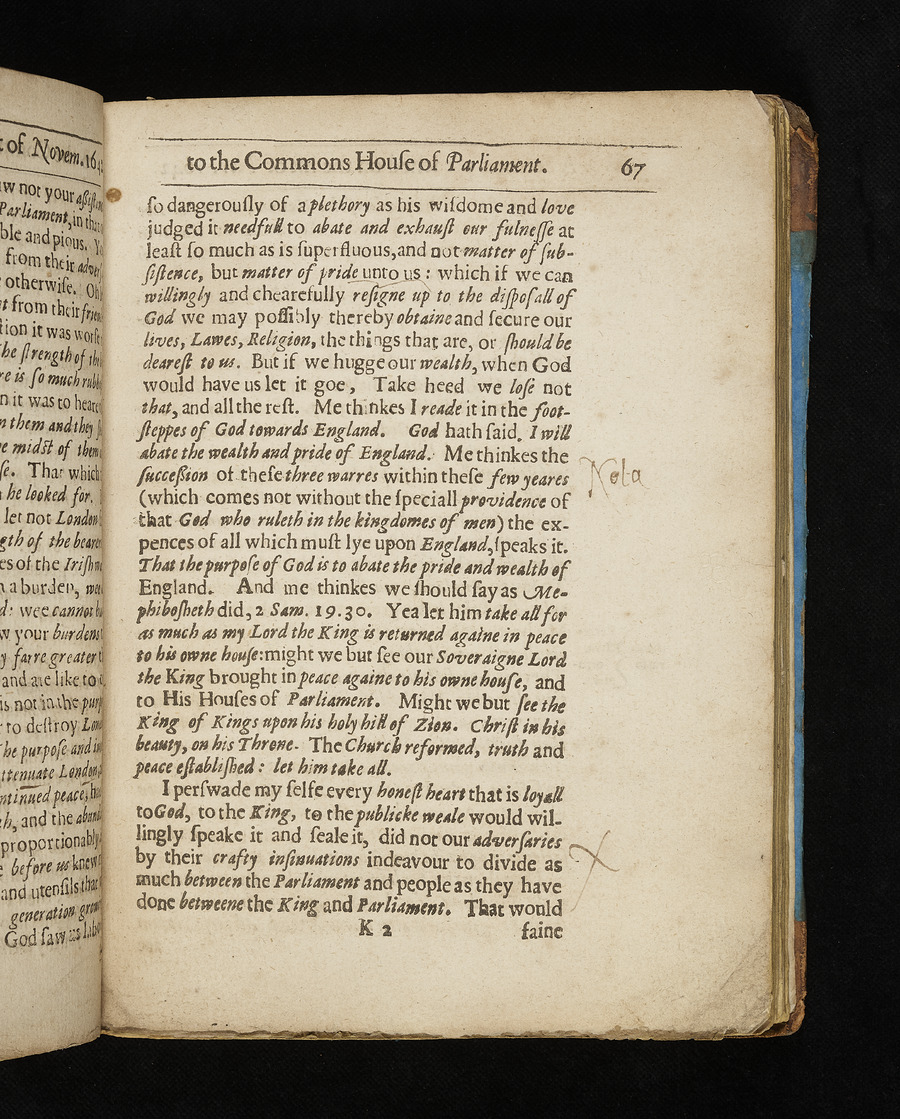 t of Novem. 164
w not your assist
Parliament, in that
ble and pious. Y
from their adver
otherwise. O
t from their frien
tion it was worse
he strength of th
re is so much rubb
n it was to heare
n them and they
e midst of them
se. That which
he looked for.
let not London
gth of the beare
es of the Irish
a burden, we
d: wee cannot
w your burdens
y farre greater
and are like to
is not in the pur
to destroy Lon
he purpose and in
ttenuate London
ntinued peace,
h, and the abun
proportionably
before us knew
and utensils that
generation grow
God saw us
to the Commons Houſe of Parliament. 67
ſo dangerouſly of a plethory as his wiſdome and love
judged it needfull to abate and exhauſt our fulneſſe at
leaſt ſo much as is ſuperfluous, and not matter of ſub-
ſiſtence, but matter of pride unto us : which if we can
willingly and chearefully reſigne up to the diſpoſall of
God we may poſſibly thereby obtaine and ſecure our
lives, Lawes, Religion, the things that are, or ſhould be
deareſt to us. But if we hugge our wealth, when God
would have us let it goe, Take heed we loſe not
that, and all the reſt. Me thinkes I reade it in the foot-
ſteppes of God towards England. God hath ſaid, I will
abate the wealth and pride of England. Me thinkes the
ſucceſsion of theſe three warres within theſe few yeares
Nota
(which comes not without the ſpeciall providence of
that God who ruleth in the kingdomes of men) the ex-
pences of all which muſt lye upon England, ſpeaks it.
That the purpoſe of God is to abate the pride and wealth of
England. And me thinkes we ſhould ſay as Me-
phiboſheth did, 2 Sam. 19. 30. Yea let him take all for
as much as my Lord the King is returned againe in peace
to his owne houſe: might we but ſee our Soveraigne Lord
the King brought in peace againe to his owne houſe, and
to His Houſes of Parliament. Might we but ſee the
King of Kings upon his holy hill of Zion. Chriſt in his
beauty, on his Throne. The Church reformed, truth and
peace eſtabliſhed : let him take all.
I perſwade my ſelfe every honeſt heart that is loyall
to God, to the King, to the publicke weale would wil-
lingly ſpeake it and ſeale it, did not our adverſaries
by their crafty inſinuations indeavour to divide as
much between the Parliament and people as they have
done betweene the King and Parliament. That would
K 2 faine